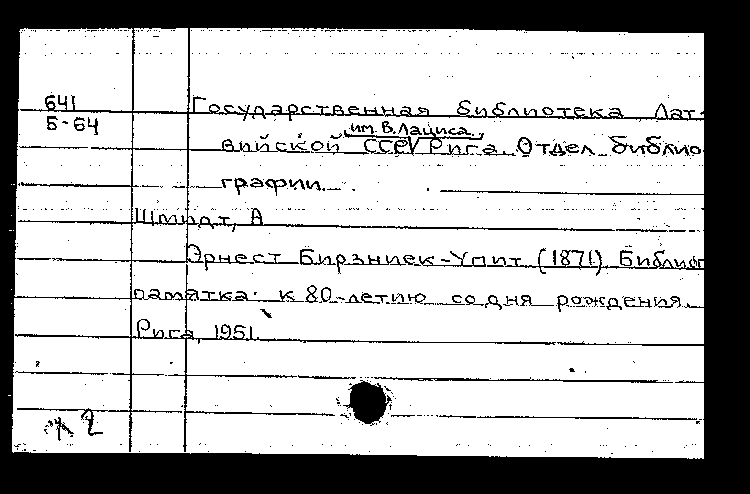 641
Б-64
Государственная библиотека Лат-
им. В. Лациса
вийской ССР Рига. Отдел библио
графии.
Шмидт, А
Эрнест Бирзниек-Упит (1871) Библиог
памятка к 80-летию со дня рождения.
Рига, 1951.
2